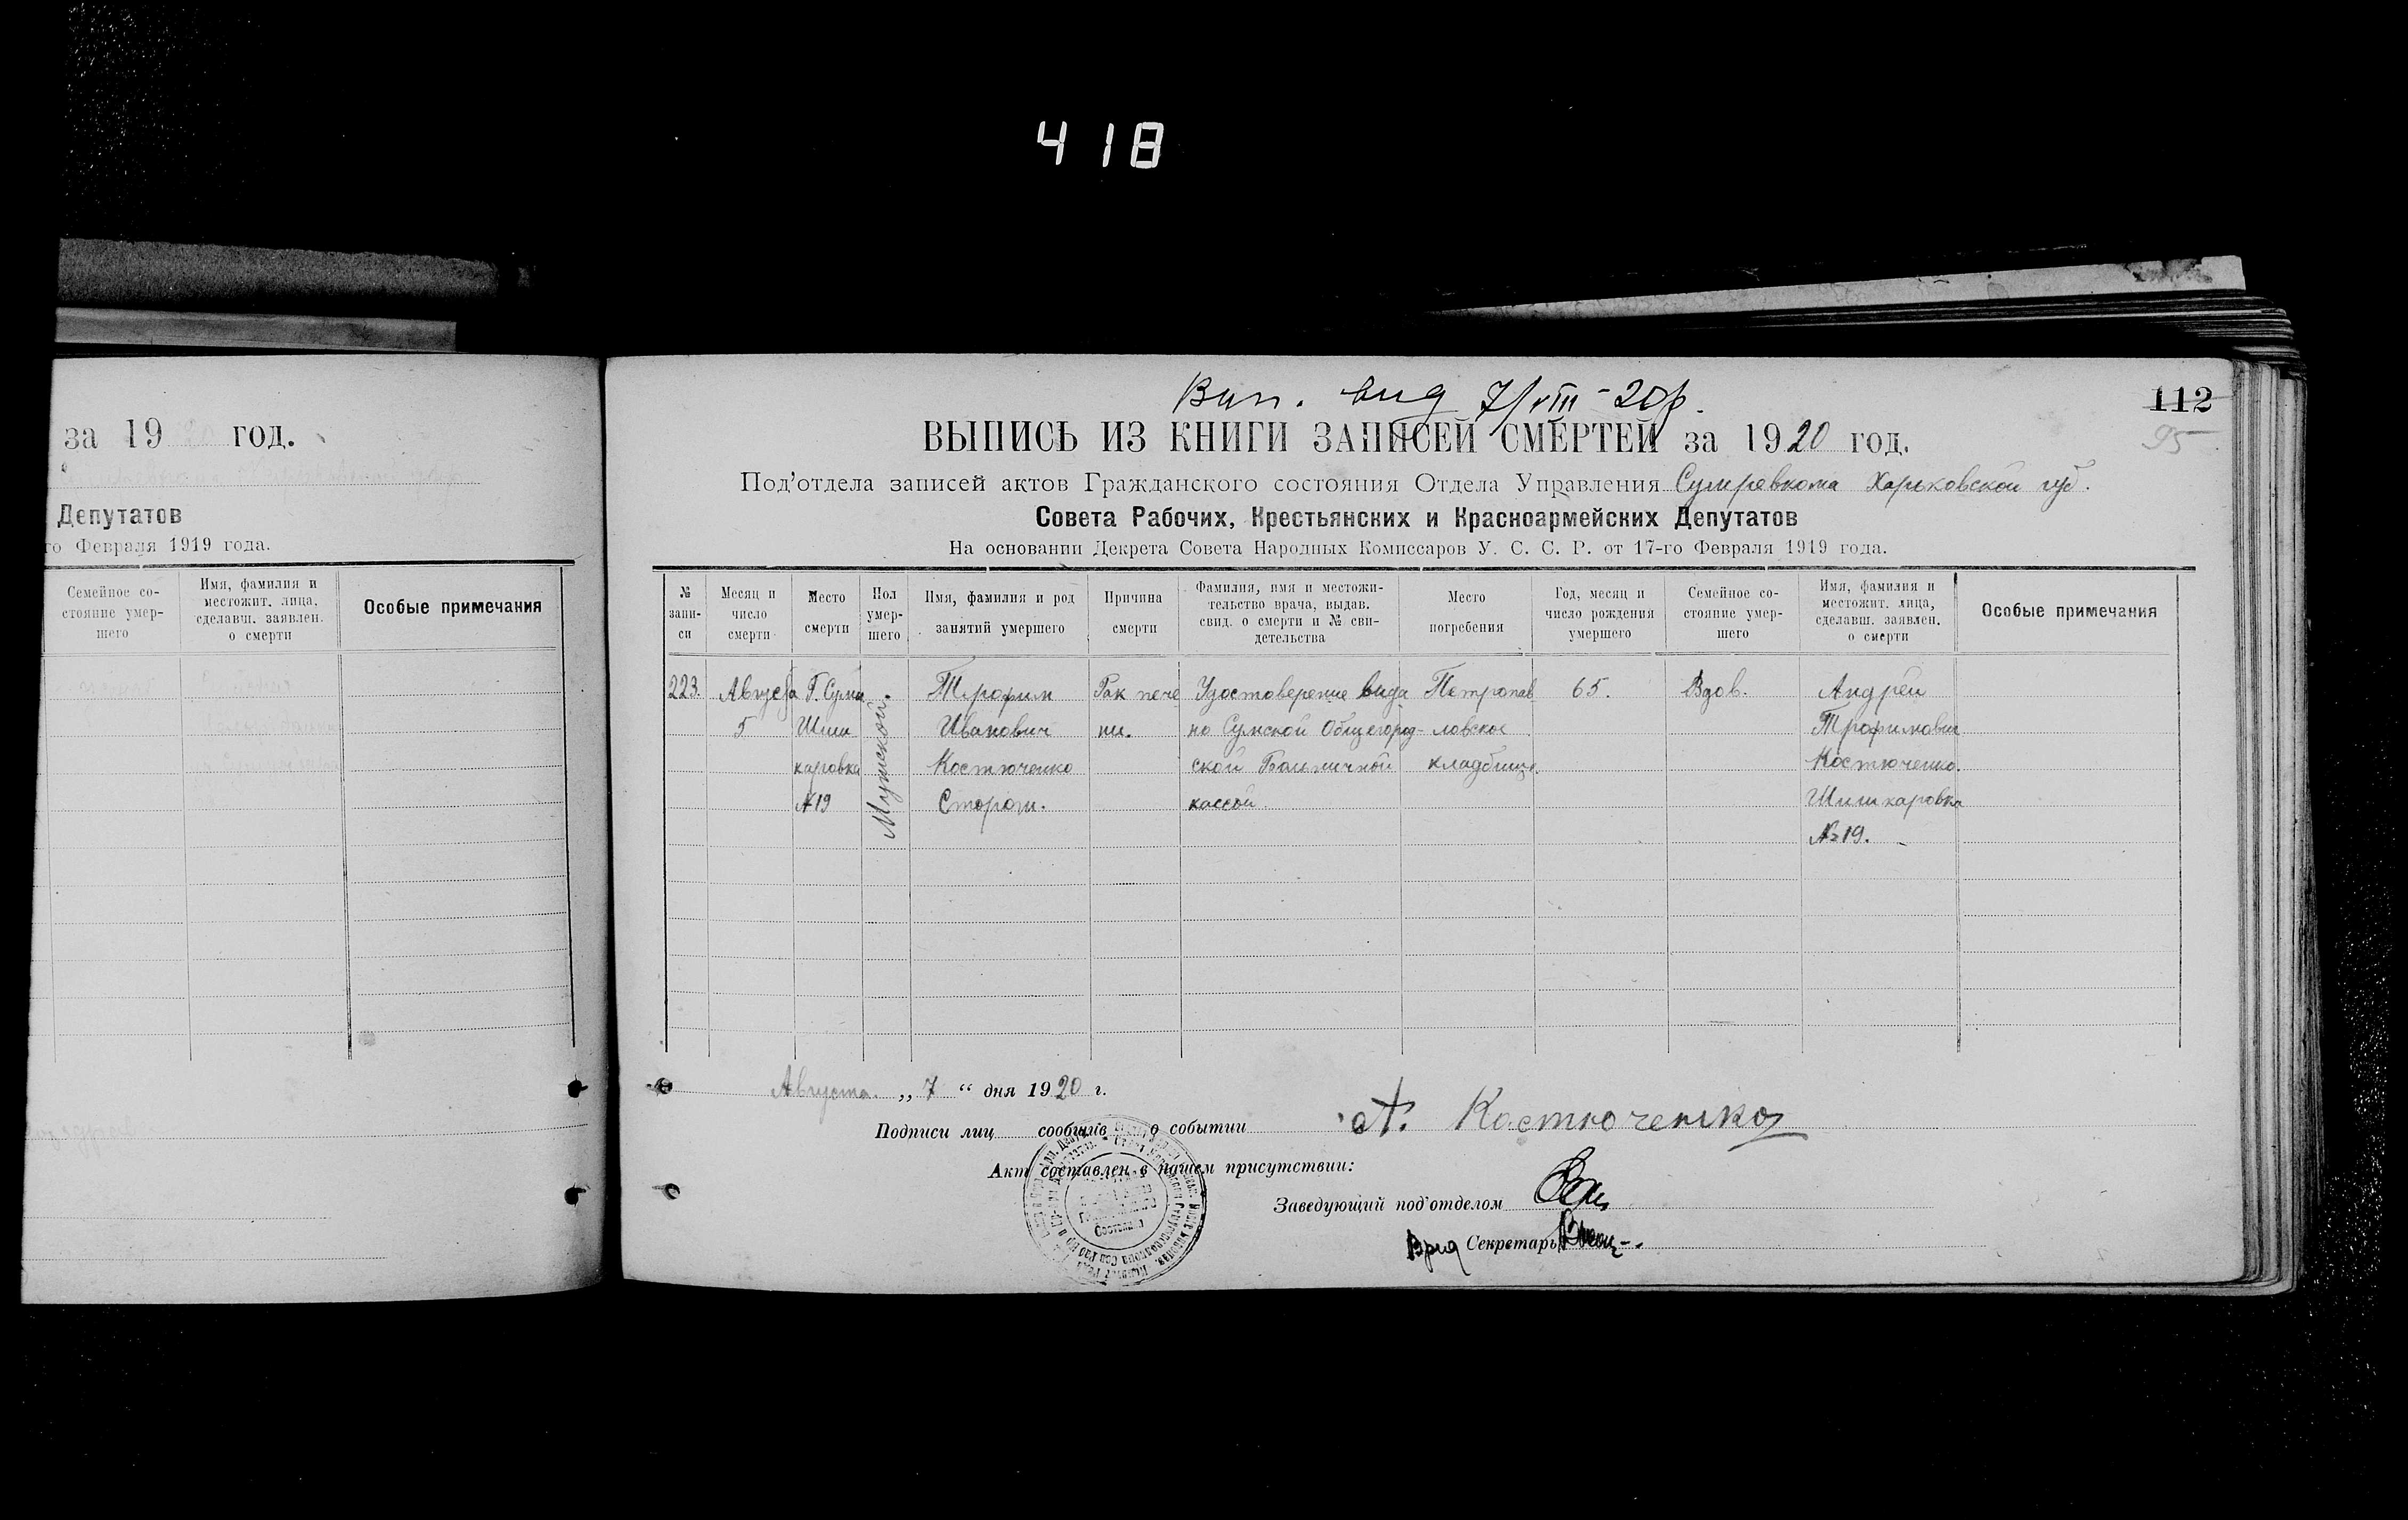 418
за 19 год.
Депутатов
го Февраля 1919 года.
Семейное со-
стояние умер-
шего
Имя, фамилия и
местожит. лица,
сделавш. заявлен.
о смерти
Особые примечания
Вип. вид 7/VIII-20р.
112
95
ВЫПИСЬ ИЗ КНИГИ ЗАПИСЕЙ СМЕРТЕЙ за 1920 год.
Под'отдела записей актов Гражданского состояния Отдела Управления Сумревкома Харьковской губ.
Совета Рабочих, Крестьянских и Красноармейских Депутатов
На основании Декрета Совета Народных Комиссаров У. С. С. Р. от 17-го Февраля 1919 года.
№
запи-
си
Месяц и
число
смерти
Место
смерти
Пол
умер-
шего
Имя, фамилия и род
занятий умершего
Причина
смерти
Фамилия, имя и местожи-
тельство врача, выдав.
свид. о смерти и № сви-
детельства
Место
погребения
Год, месяц и
число рождения
умершего
Семейное со-
стояние умер-
шего
Имя, фамилия и
местожит. лица,
сделавш. заявлен.
о смерти
Особые примечания
223.
Августа
5
Г. Сумы
Шиш
каровка
№19
Мужской.
Трофим
Иванович
Костюченко
Сторож.
Рак пече
ни.
Удостоверение выда
но Сумской Общегород-
ской Больничной
кассой
Петропав
ловское
кладбище.
65.
Вдов.
Андрей
Трофимович
Костюченко.
Шишкаровка
№19.
Августа „ 7 “ дня 1920 г.
Подписи лиц сообщив о событии А. Костюченко
Акт составлен в нашем присутствии:
Заведующий под'отделом
Врид Секретарь